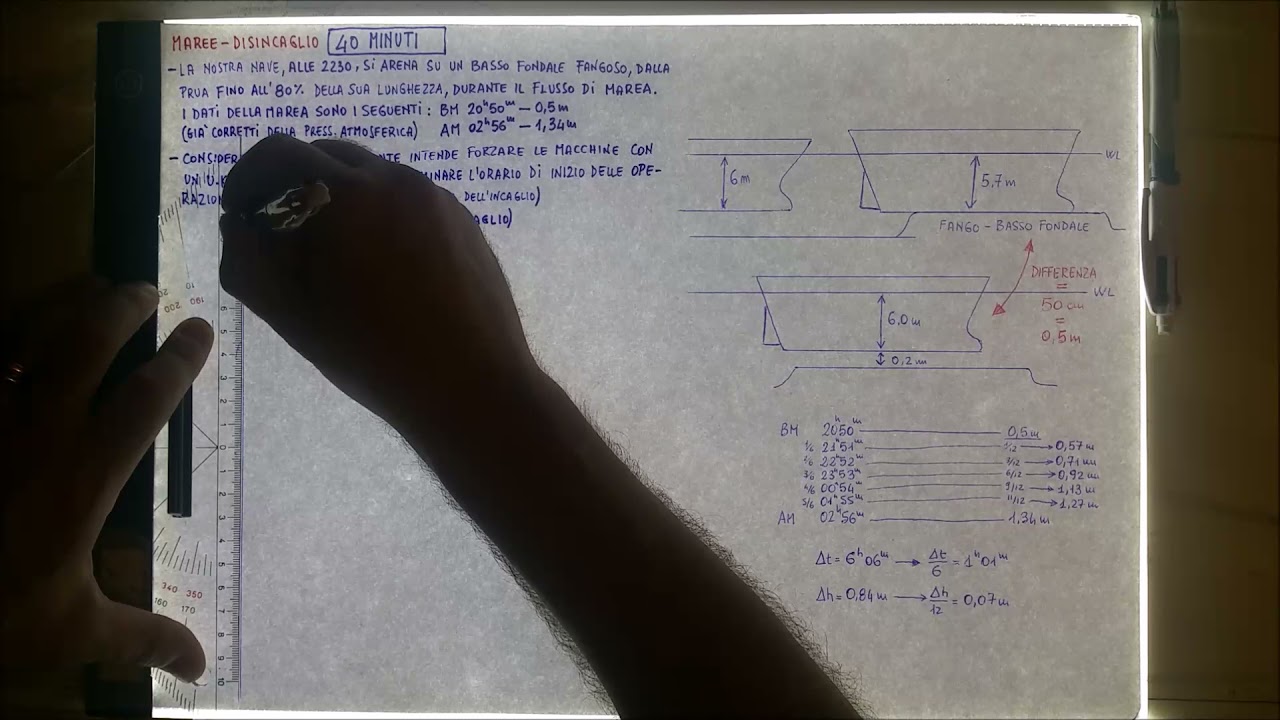 MAREE - DISINCAGLIO 40 MINUTI
- LA NOSTRA NAVE, ALLE 2230, SI ARENA SU UN BASSO FONDALE FANGOSO, DALLA
PRUA FINO ALL'80% DELLA SUA LUNGHEZZA, DURANTE IL FLUSSO DI MAREA.
I DATI DELLA MAREA SONO I SEGUENTI: BM 20h50m - 0,5m
(GIA' CORRETTI DELLA PRESS. ATMOSFERICA) AM 02h56m - 1,34m
INTENDE FORZARE LE MACCHINE CON
L'ORARIO DI INIZIO DELLE OPE-
DELL'INCAGLIO)
6m
5.7m
WL
FANGO - BASSO FONDALE
DIFFERENZA
=
50 cm
=
0,5m
WL
6.0m
0,2m
BM 20h50m 0,5m
1/6 21h51m 1/12 → 0,57m
2/6 22h52m 3/12 → 0,71m
3/6 23h53m 6/12 → 0,92m
4/6 00h54m 9/12 → 1,13m
5/6 01h55m 11/12 → 1,27m
AM 02h56m 1,34m
Δt = 6h06m → Δt/6 = 1h01m
Δh = 0,84m → Δh/12 = 0,07m
10
190
200
6
5
4
3
2
1
0
1
2
3
4
5
6
7
8
9
10
340 350
160 170